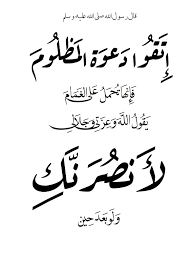 قال رسول الله صلى الله عليه وسلم
إِتَّقُوا دَعْوَةَ المَظْلُومِ
فَإِنَّها تُحْمَلُ عَلَى الغَمَامِ
يَقُولُ اللَّهُ وَعِزَّتِي وَجَلَالِي
لأَنْصُرَنَّكِ
وَلَوْ بَعْدَ حِين